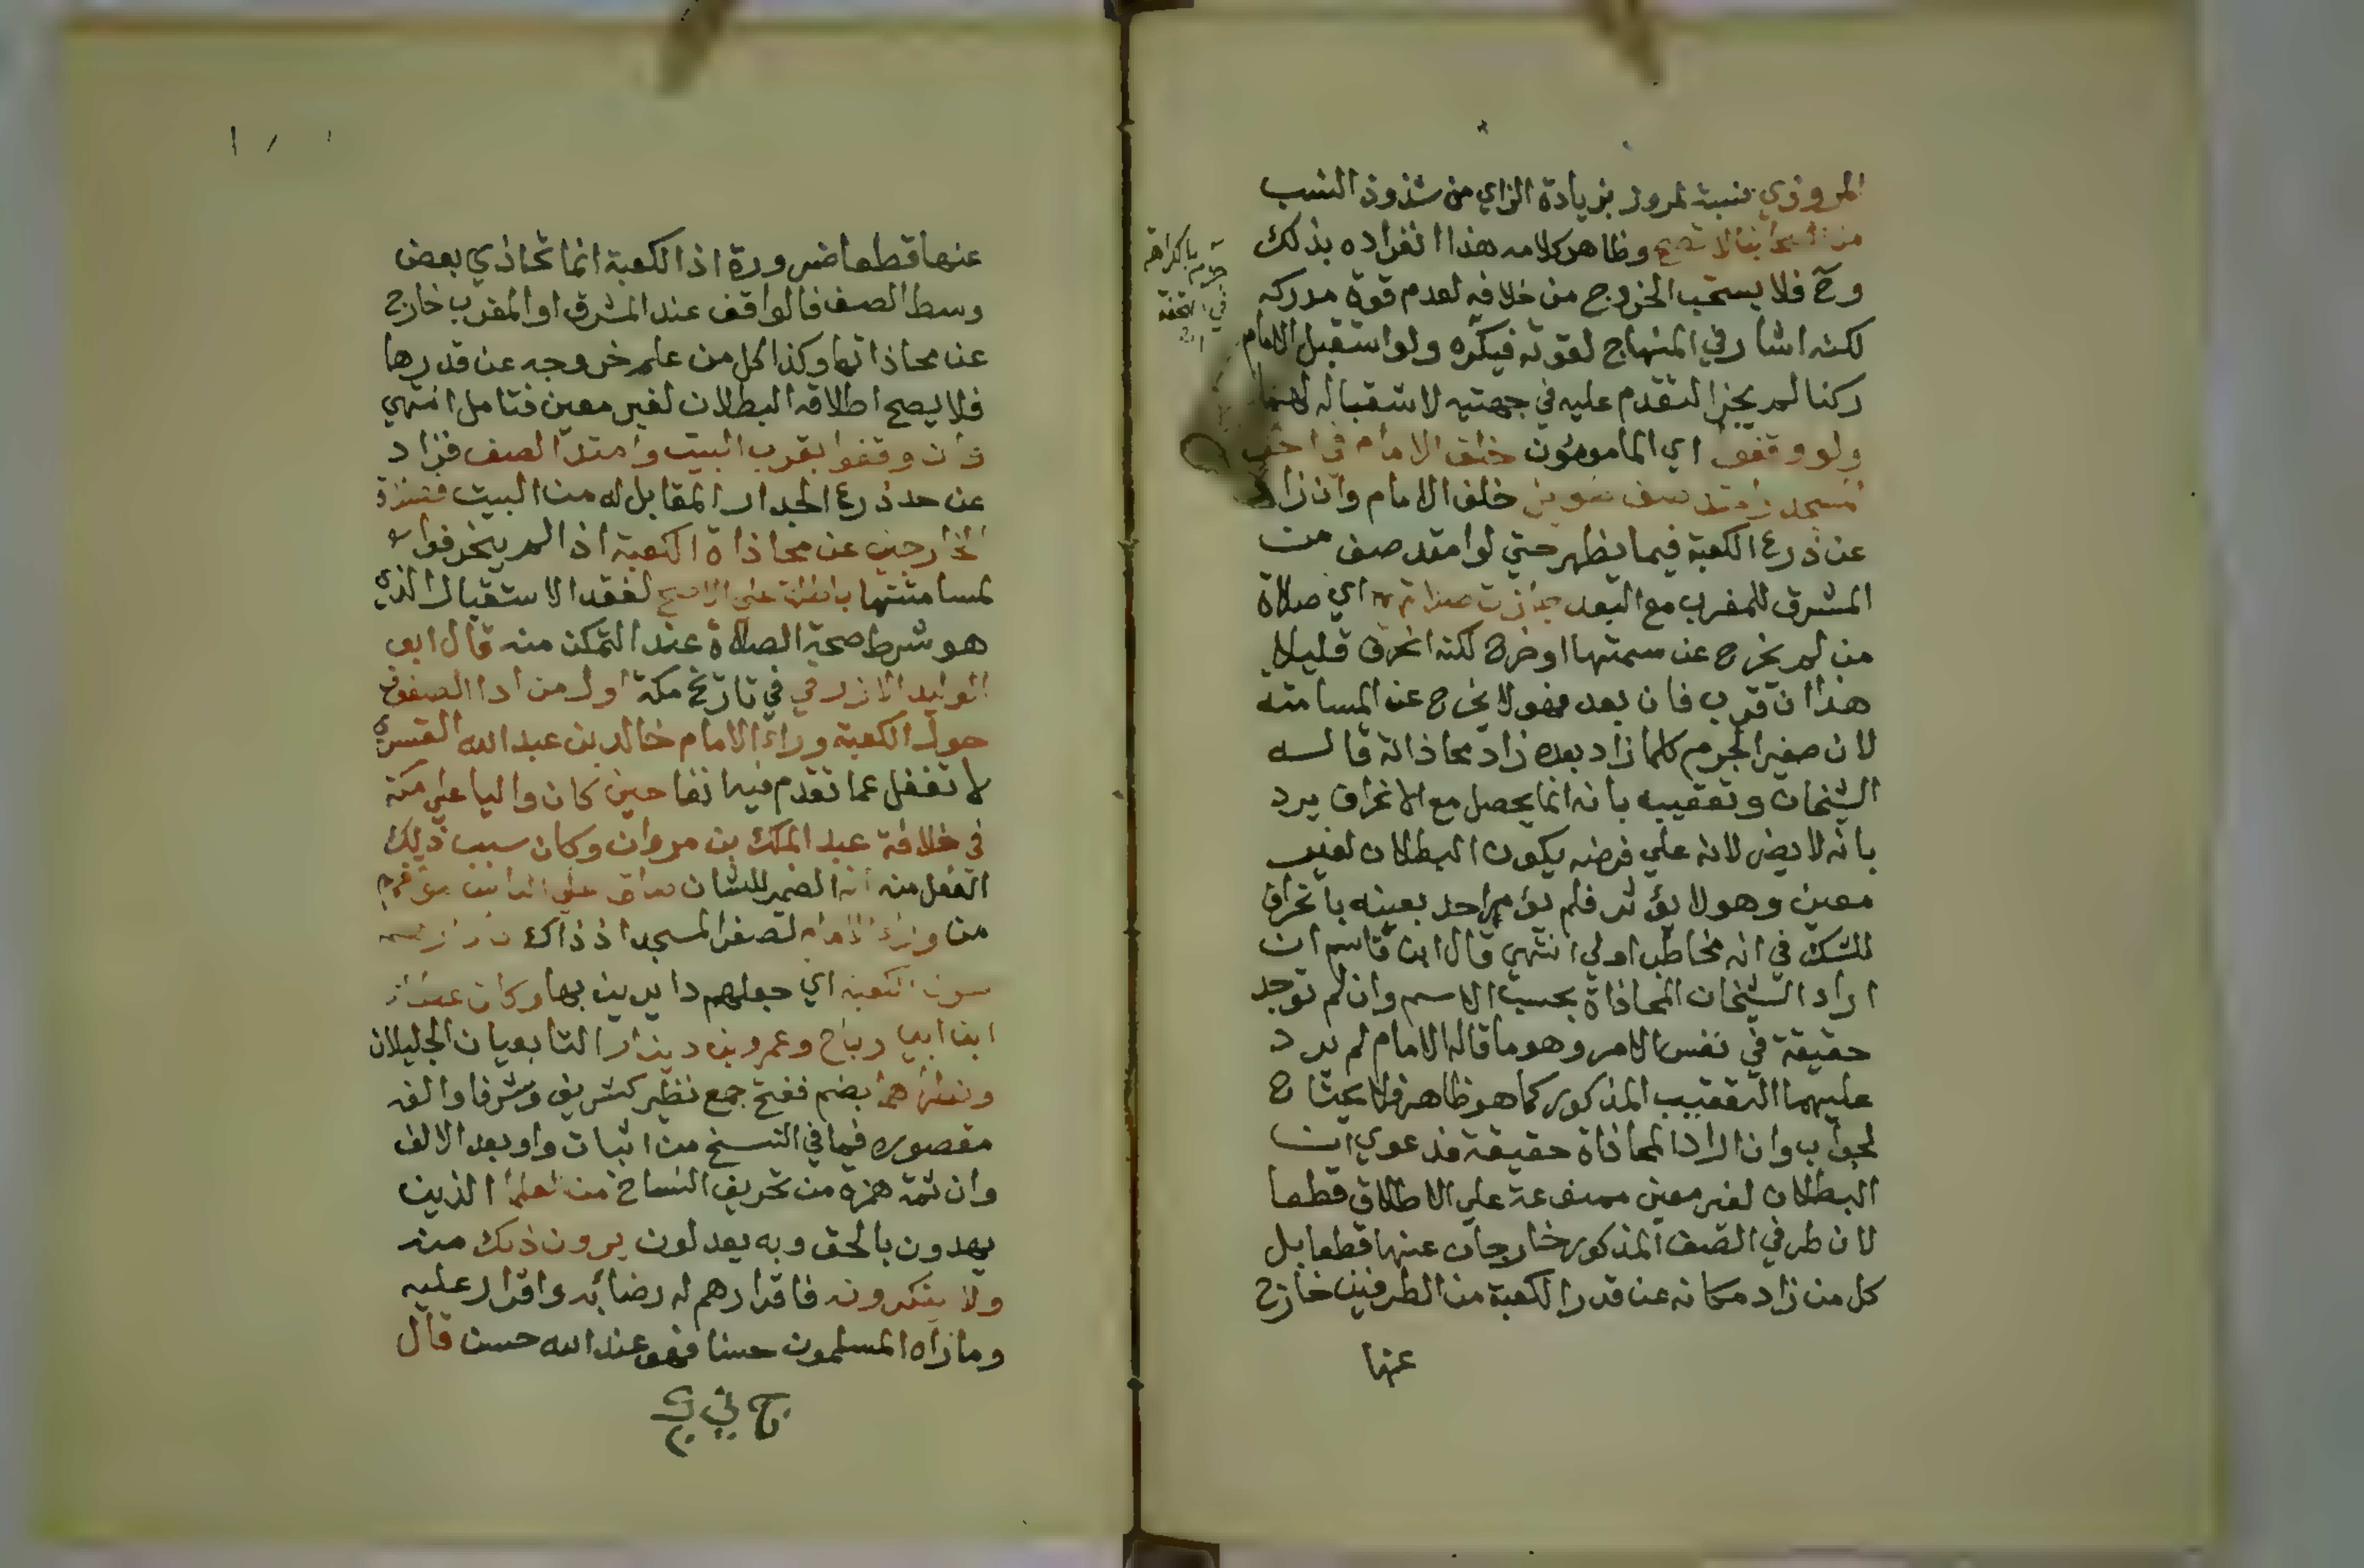 المروزي نسبة لمرو بزيادة الزاي من شذوذ النسب
من اصحابنا لا تصح وظاهر كلامه هذا انفراده بذلك
وح فلا يستحب الخروج من خلافه لعدم قوة مدركه
لكنه اشار في المنهاج لقوته فيكره ولو استقبل الامام
ركنا لم يجز التقدم عليه في جهتيه لاستقباله لهما
ولو وقفوا اي المامومون خلف الامام في اخر
المسجد وامتد صف طويل خلف الامام وان زاد
عن ذرع الكعبة فيما يظهر حتي لو امتد صف من
المشرق للمغرب مع البعد جازت صلاتهم اي صلاة
من لم يخرج عن سمتها او خرج لكنه انحرف قليلا
هذا ان قرب فان بعد فهو لا يخرج عن المسامتة
لان صغير الجرم كلما زاد بعده زاد محاذاته قاله
الشيخان وتعقيبه بانه انما يحصل مع الانحراف يرد
بانه لا يضر لانه علي فرضه يكون البطلان لغير
معين وهو لا يؤثر فلم يؤمر احد بعينه بانحراف
للشك في انه مخاطب اولي انتهي قال ابن قاسم ان
اراد الشيخان المحاذاة بحسب الاسم وان لم توجد
حقيقة في نفس الامر وهو ما قاله الامام لم يرد
عليهما التعقيب المذكور كما هو ظاهر فلا يحتاج
لجواب وان ارادا المحاذاة حقيقة فدعوي ان
البطلان لغير معين ممنوعة علي الاطلاق قطعا
لان طرفي الصف المذكور خارجان عنها قطعا بل
كل من زاد مكانه عن قدر الكعبة من الطرفين خارج
عنها
في التحفة
عنها قطعا ضرورة اذ الكعبة انما تحاذي بعض
وسط الصف فالواقف عند المشرق او المغرب خارج
عن محاذاتها وكذا كل من علم خروجه عن قدرها
فلا يصح اطلاقه البطلان لغير معين فتامل انتهي
وان وقفوا بقرب البيت وامتد الصف فزاد
عن حد ذرع الجدار المقابل له من البيت فصلاة
الخارجين عن محاذاة الكعبة اذا لم ينحرفوا
لمسامتتها باطلة علي الاصح لفقد الاستقبال الذي
هو شرط صحة الصلاة عند التمكن منه قال ابو
الوليد الازرقي في تاريخ مكة اول من ادار الصفوف
حول الكعبة وراء الامام خالد بن عبد الله القسري
لا تغفل عما تقدم فيه انفا حين كان واليا علي مكة
في خلافة عبد الملك بن مروان وكان سبب ذلك
الفعل منه انه الضمير للشان ضاق علي الناس موقفهم
من وراء الامام لصغر المسجد اذ ذاك فادارهم
حول الكعبة اي جعلهم دايرين بها وكان عطاء
ابن ابي رباح وعمرو بن دينار التابعيان الجليلان
ونظراهما بضم ففتح جمع نظير كشريف وشرفا والفه
مقصوره فيما في النسخ من اثبات واو بعد الالف
وان ثمة همزه من تحريف النساخ من العلما الذين
يهدون بالحق وبه يعدلون يرون ذلك منه
ولا ينكرونه فاقرارهم له رضا به واقرار عليه
وما رآه المسلمون حسنا فهو عند الله حسن قال